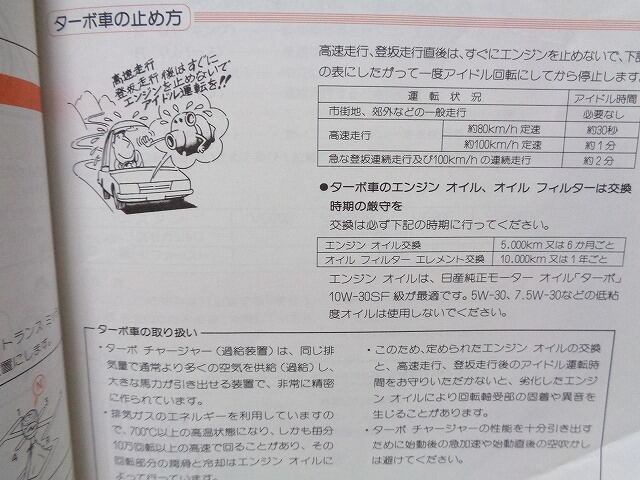 ターボ車の止め方
高速走行
登坂走行後はすぐに
エンジンを止めないで
アイドル運転を!!
高速走行、登坂走行直後は、すぐにエンジンを止めないで、下記
の表にしたがって一度アイドル回転にしてから停止します
運転状況 アイドル時間
市街地、郊外などの一般走行 必要なし
高速走行 約80km/h定速 約30秒
約100km/h定速 約1分
急な登坂連続走行及び100km/hの連続走行 約2分
●ターボ車のエンジン オイル、オイル フィルターは交換
時期の厳守を
交換は必ず下記の時期に行ってください。
エンジン オイル交換 5,000km又は6か月ごと
オイル フィルター エレメント交換 10,000km又は1年ごと
エンジン オイルは、日産純正モーター オイル「ターボ」
10W-30SF級が最適です。5W-30、7.5W-30などの低粘
度オイルは使用しないでください。
トランスミ
置にします。
ターボ車の取り扱い
・ターボ チャージャー(過給装置)は、同じ排
気量で通常より多くの空気を供給(過給)し、
大きな馬力が引き出せる装置で、非常に精密
に作られています。
・排気ガスのエネルギーを利用していますの
で、700℃以上の高温状態になり、しかも毎分
10万回転以上の高速で回ることがあり、その
回転部分の潤滑と冷却はエンジン オイルに
よって行っています。
・このため、定められたエンジン オイルの交換
と、高速走行、登坂走行後のアイドル運転時
間をお守りいただかないと、劣化したエンジ
ン オイルにより回転軸受部の固着や異音を
生じることがあります。
・ターボ チャージャーの性能を十分引き出す
ために始動後の急加速や始動直後の空吹かし
は避けてください。